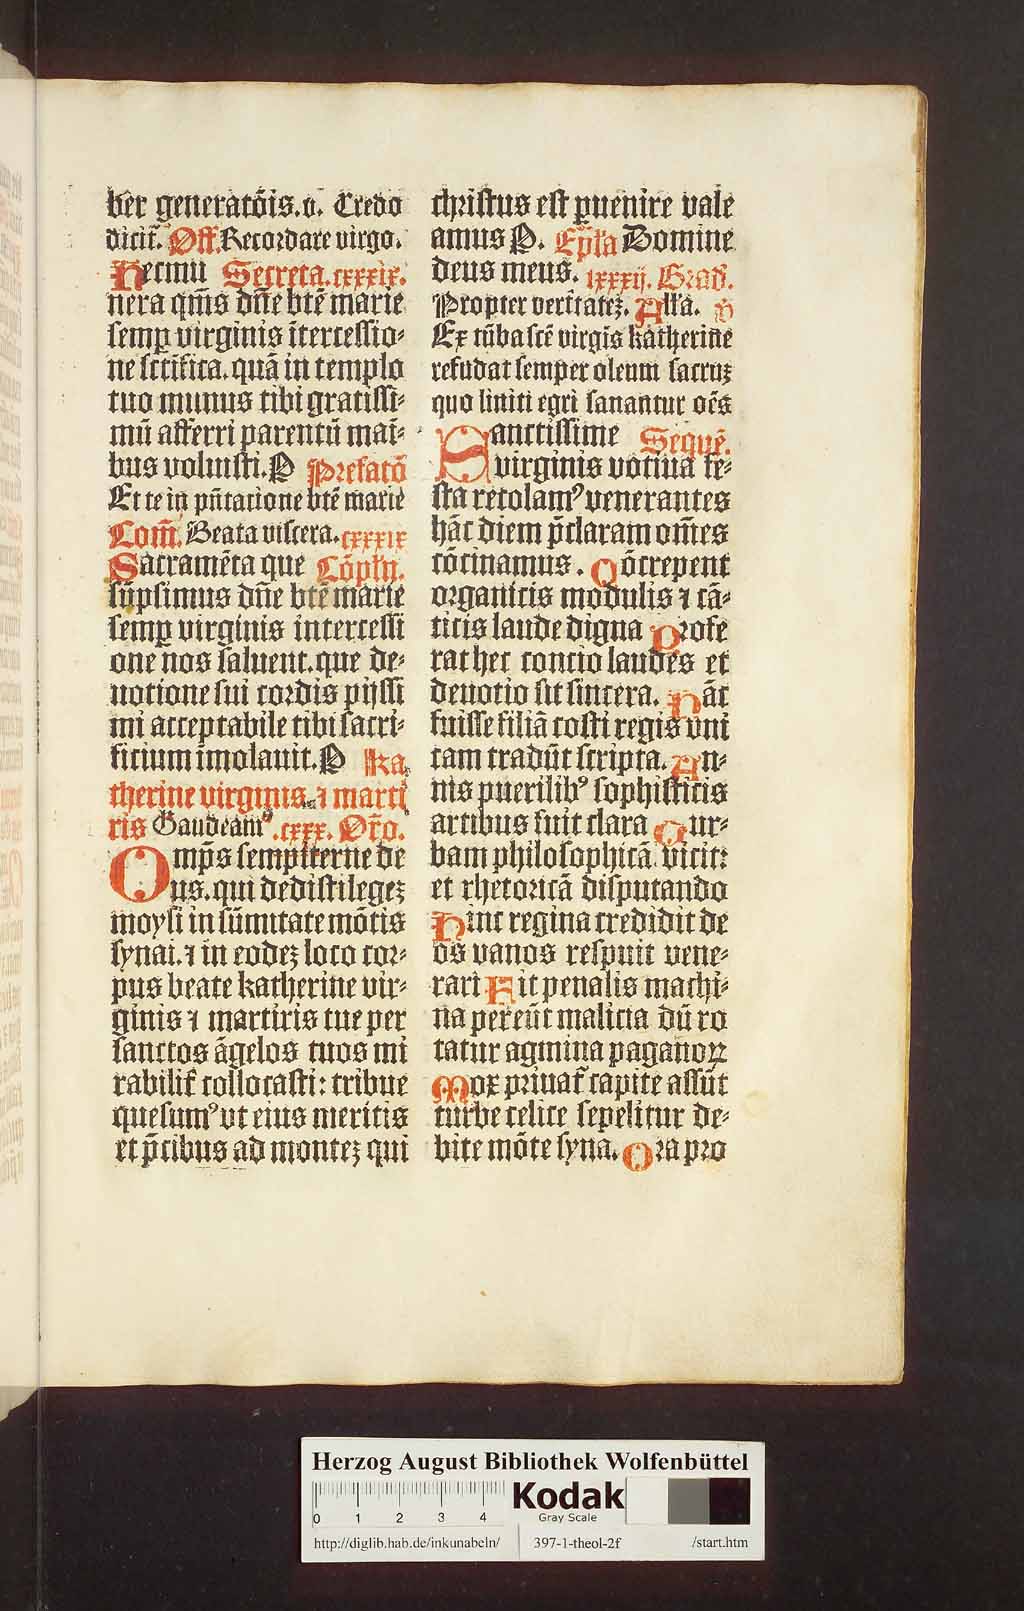 ber generatōis.v. Credo
dicit̄. Off. Recordare virgo.
Hec mu Secreta. cxxxix.
nera qm̄s dn̄e btē marie
semꝑ virginis ītercessio⸗
ne sctīfica. quā in templo
tuo munus tibi gratissi⸗
mū afferri parentū mai̅⸗
bus voluisti. P Prefatō
Et te in pn̄tatione btē marie
Com̄. Beata viscera. cxxxix
Sacramēta que Cōpln̄.
sūpsimus dn̄e btē marie
semꝑ virginis intercessi
one nos saluent. que de⸗
uotione sui cordis pijssi
mi acceptabile tibi sacri⸗
ficium īmolauit. P Ka
therine virginis. ⁊ marti
ris Gaudeamꝰ .cxxx. Or̄o.
Omp̄s sempiterne de
us. qui dedisti legeꝫ
moysi in sūmitate mōtis
synai. ⁊ in eodeꝫ loco cor⸗
pus beate katherine vir⸗
ginis ⁊ martiris tue per
sanctos āgelos tuos mi
rabilit̄ collocasti: tribue
quesumꝰ vt eius meritis
et p̄cibus ad monteꝫ qui
christus est ꝑuenire vale
amus P. Epl̄a Domine
deus meus. lxxxij. Grad̄.
Propter veritateꝫ. All'a. ꝟ
Ex tūba scē virgīs katherine
resudat semper oleum sacruꝫ
quo liniti egri sanantur oēs
Sanctissime Sequē.
virginis votiua fe⸗
sta recolamꝰ venerantes
hāc diem p̄claram om̄es
cōcinamus. Cōcrepent
organicis modulis ⁊ cā⸗
ticis laude digna Profe
rat hec concio laudes et
deuotio sit sincera. Hāc
fuisse filiā costi regis vni
cam tradūt scripta. An⸗
nis puerilibꝰ sophisticis
artibus fuit clara Tur⸗
bam philosophicā vicit:
et rhetoricā disputando
Hinc regina credidit de
os vanos respuit vene⸗
rari Fit penalis machi⸗
na pereūt malicia dū ro
tatur agmina paganoꝝ
Mox priuat̄ capite assūt
turbe celice sepelitur de⸗
bite mōte syna. Ora pro
Herzog August Bibliothek Wolfenbüttel
0 1 2 3 4 Kodak
Gray Scale
http://diglib.hab.de/inkunabeln/ 397-1-theol-2f /start.htm